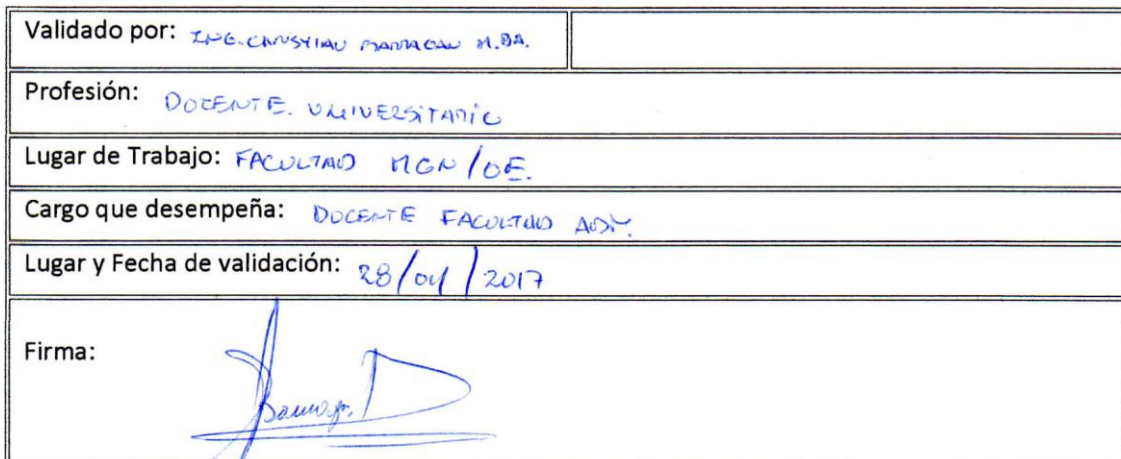 Validado por: ING. CHRISTIAN BARRAGAN M.BA.
Profesión: DOCENTE. UNIVERSITARIO
Lugar de Trabajo: FACULTAD
Cargo que desempeña: DOCENTE FACULTAD ADM.
Lugar y Fecha de validación: 28/04/2017
Firma: